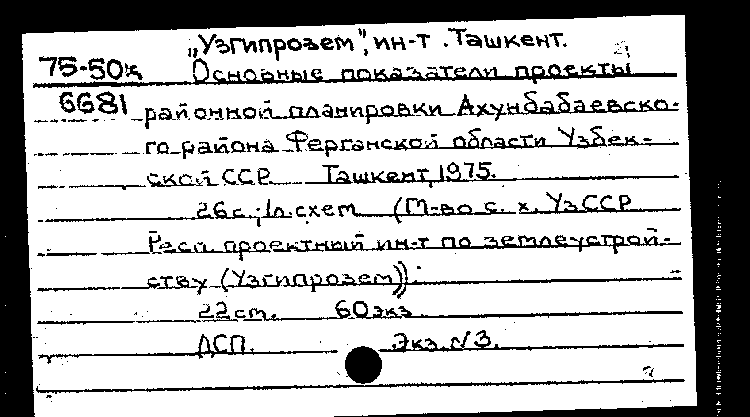 „Узгипрозем", ин-т. Ташкент.
75-50к Основные показатели проекты
6681 районной планировки Ахунбабаевско-
го района Ферганской области Узбек-
ской ССР. Ташкент, 1975.
26с.; 1л.схем (М-во с. х. УзССР
Респ. проектный ин-т по землеустрой-
ству (Узгипрозем)).
22см. 60экз
ДСП. Экз. №3.